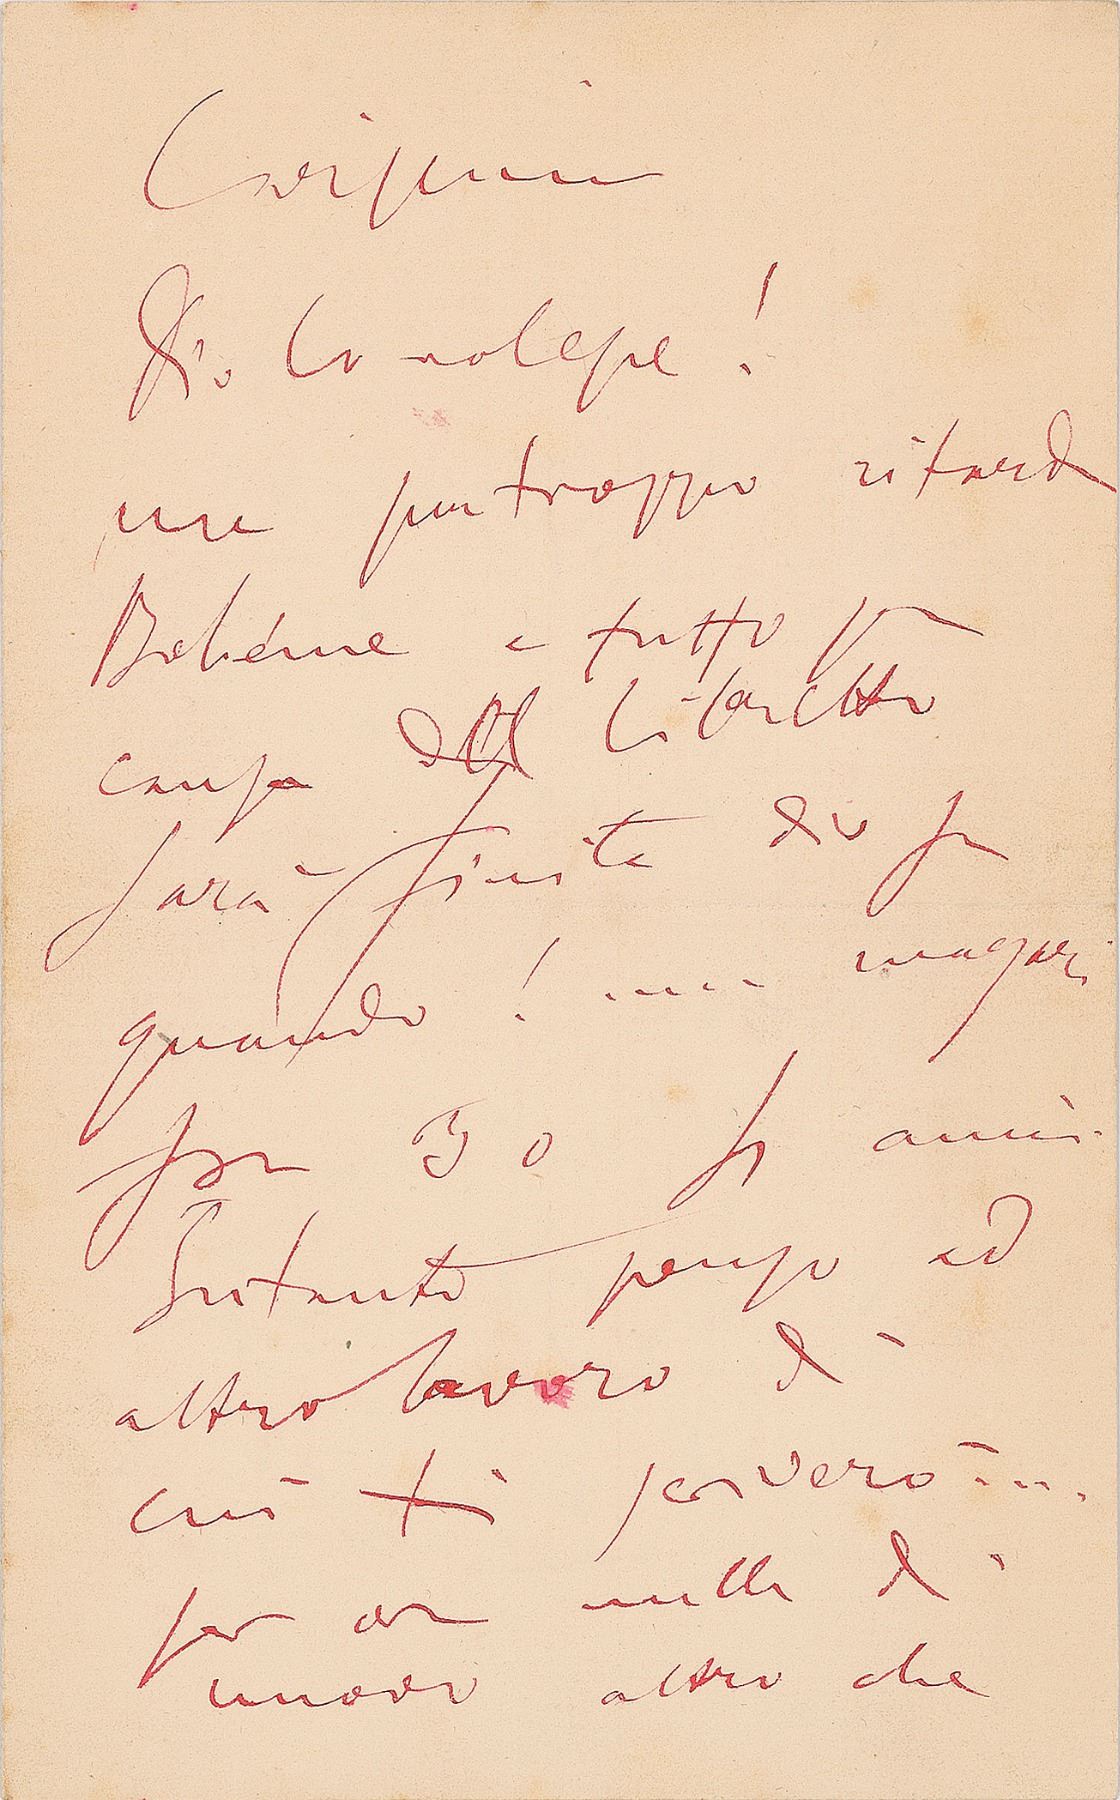 Carissimi
Dio lo volesse!
ma purtroppo ritarda
Bohéme e tutto per
causa del libretto
Sarà finita Dio sa
quando! ..... magari
fra 30 anni.
Intanto penso ad
altro lavoro di
cui ti scriverò...
per ora nulla di
nuovo altro che